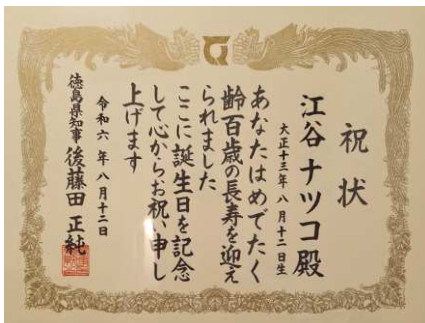 祝状
江谷ナツコ殿
大正十三年八月十二日生
あなたはめでたく
齢百歳の長寿を迎え
られました
ここに誕生日を記念
して心からお祝い申し
上げます
令和六年八月十二日
徳島県知事 後藤田正純